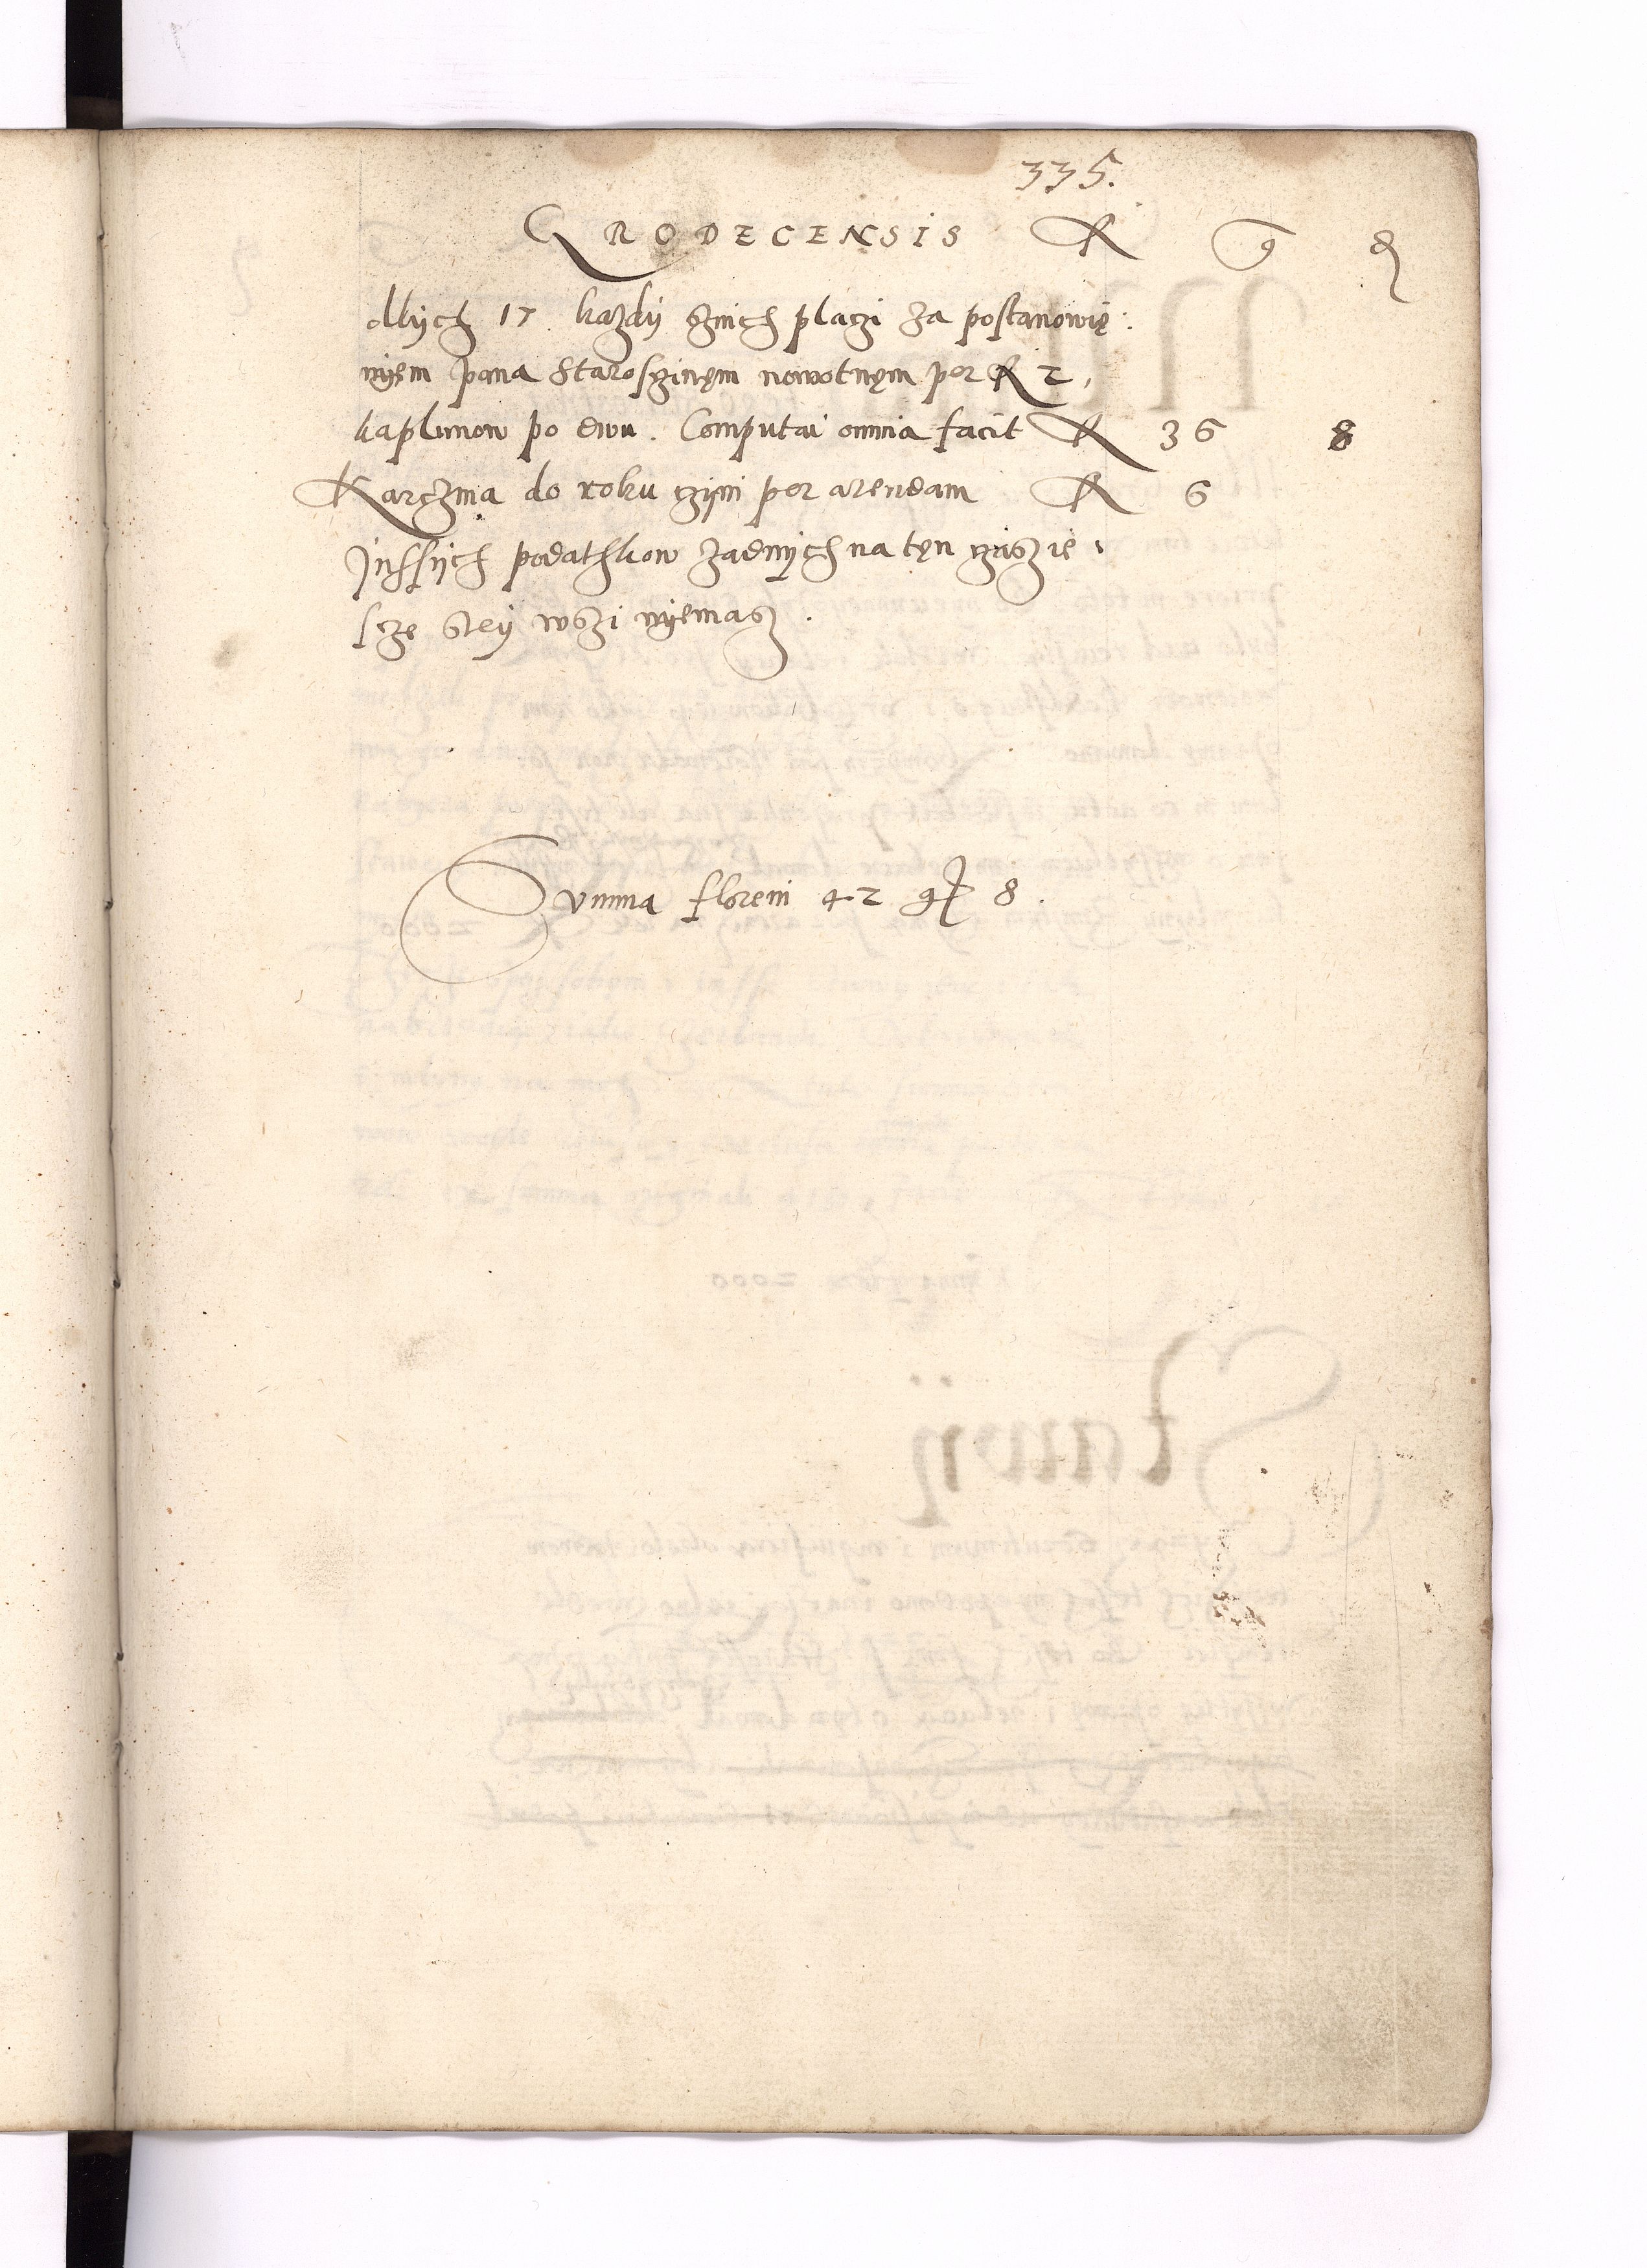 335.
GRODECENSIS fl g d
dlych 17 każdy sznich placzi za postanowię:
niyem pana Starosczinęm nowotnęm per fl 2,
kaplunow po dwu. Computai omnia facit fl 36 8
Karczma do roku czyni per arendam fl 6
Jnssych podathkow żadnych na tęn czas ie:
scze stey wszi niyemasz.
Summa floreni 42 g 8.